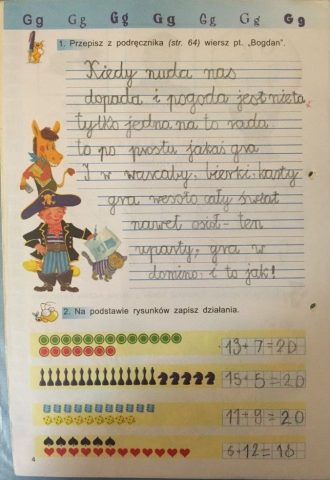 Gg Gg Gg Gg Gg Gg Gg
1. Przepisz z podręcznika (str. 64) wiersz pt. „Bogdan”.
Kiedy nuda nas
dopada i pogoda jest nieta
tylko jedna na to rada
to po prostu jakaś gra
I w warcaby, bierki, karty
gra wesoło cały świat
nawet osioł - ten
uparty, gra w
domino: i to jak!
2. Na podstawie rysunków zapisz działania.
13+7=20
15+5=20
11+9=20
6+12=18
4